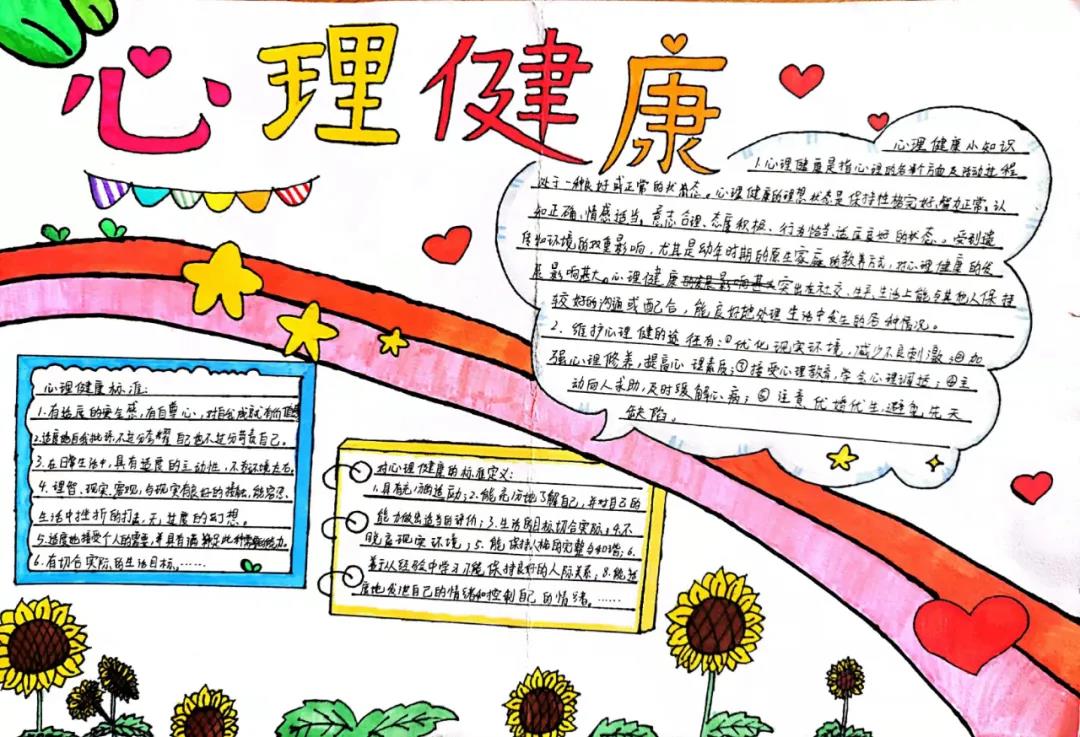 心理健康
心理健康小知识
1.心理健康是指心理的各个方面及活动过程
处于一种良好或正常的状态。心理健康的理想状态是保持性格完好、智力正常、认
知正确、情感适当、意志合理、态度积极、行为恰当、适应良好的状态。受到遗
传和环境的双重影响,尤其是幼年时期的原生家庭的教养方式,对心理健康的发
展影响甚大。心理健康突出在社交、生产、生活上能与其他人保持
较好的沟通或配合,能良好地处理生活中发生的各种情况。
2、维护心理健的途径有:①优化现实环境,减少不良刺激;②加
强心理修养,提高心理素质;③接受心理教育,学会心理调适;④主
动向人求助,及时缓解心病;⑤注意优婚优生,避免先天
缺陷。
心理健康标准:
1.有适度的安全感,有自尊心,对自我成就有价值感
2.适度地自我批评,不过分夸耀自己也不过分苛责自己。
3.在日常生活中,具有适度的主动性,不为环境左右。
4.理智、现实、客观,与现实有良好的接触,能容忍
生活中挫折的打击,无过度的幻想。
5.适度地接受个人的需要,并具有满足此种需要的能力
6.有切合实际的生活目标。……
对心理健康的标准定义:
1.具有充分的适应力;2.能充分地了解自己,并对自己的
能力做出适当的评价;3.生活的目标切合实际;4.不
脱离现实环境;5.能保持人格的完整与和谐;6.
善于从经验中学习;7.能保持良好的人际关系;8.能适
度地发泄自己的情绪和控制自己的情绪。……